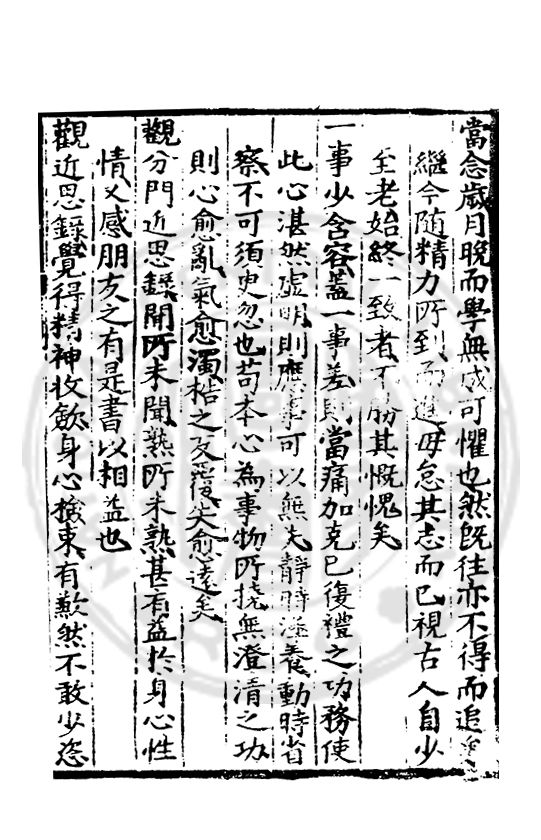 當念歲月晚而學無成可懼也然旣往亦不得而追矣
繼今隨精力所到而進毋怠其志而已視古人自少
至老始終一致者不勝其慨愧矣
一事少含容蓋一事差則當痛加克己復禮之功務使
此心湛然虛明則應事可以無失靜時涵養動時省
察不可須臾忽也苟本心為事物所撓無澄清之功
則心愈亂氣愈濁梏之反覆失愈遠矣
觀分門近思錄聞所未聞熟所未熟甚有益於身心性
情又感朋友之有是書以相益也
觀近思錄覺得精神收斂身心檢束有歉然不敢少恣